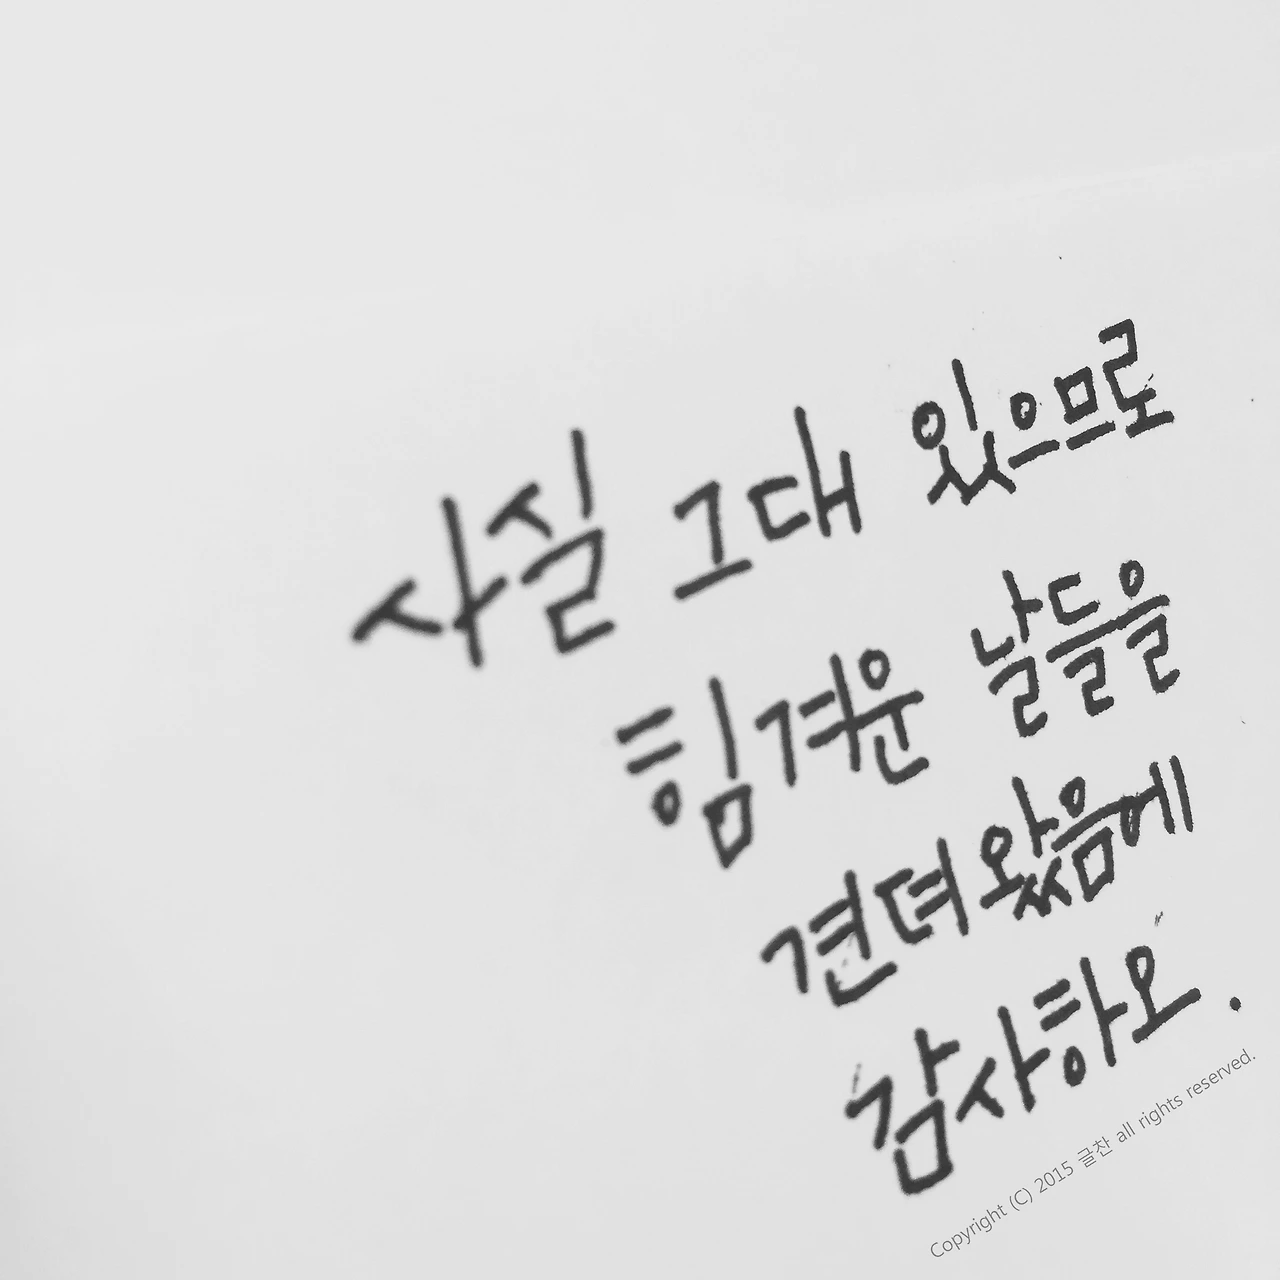 사실 그대 있으므로
힘겨운 날들을
견뎌왔음에
감사하오.
Copyright (C) 2015 글찬 all rights reserved.